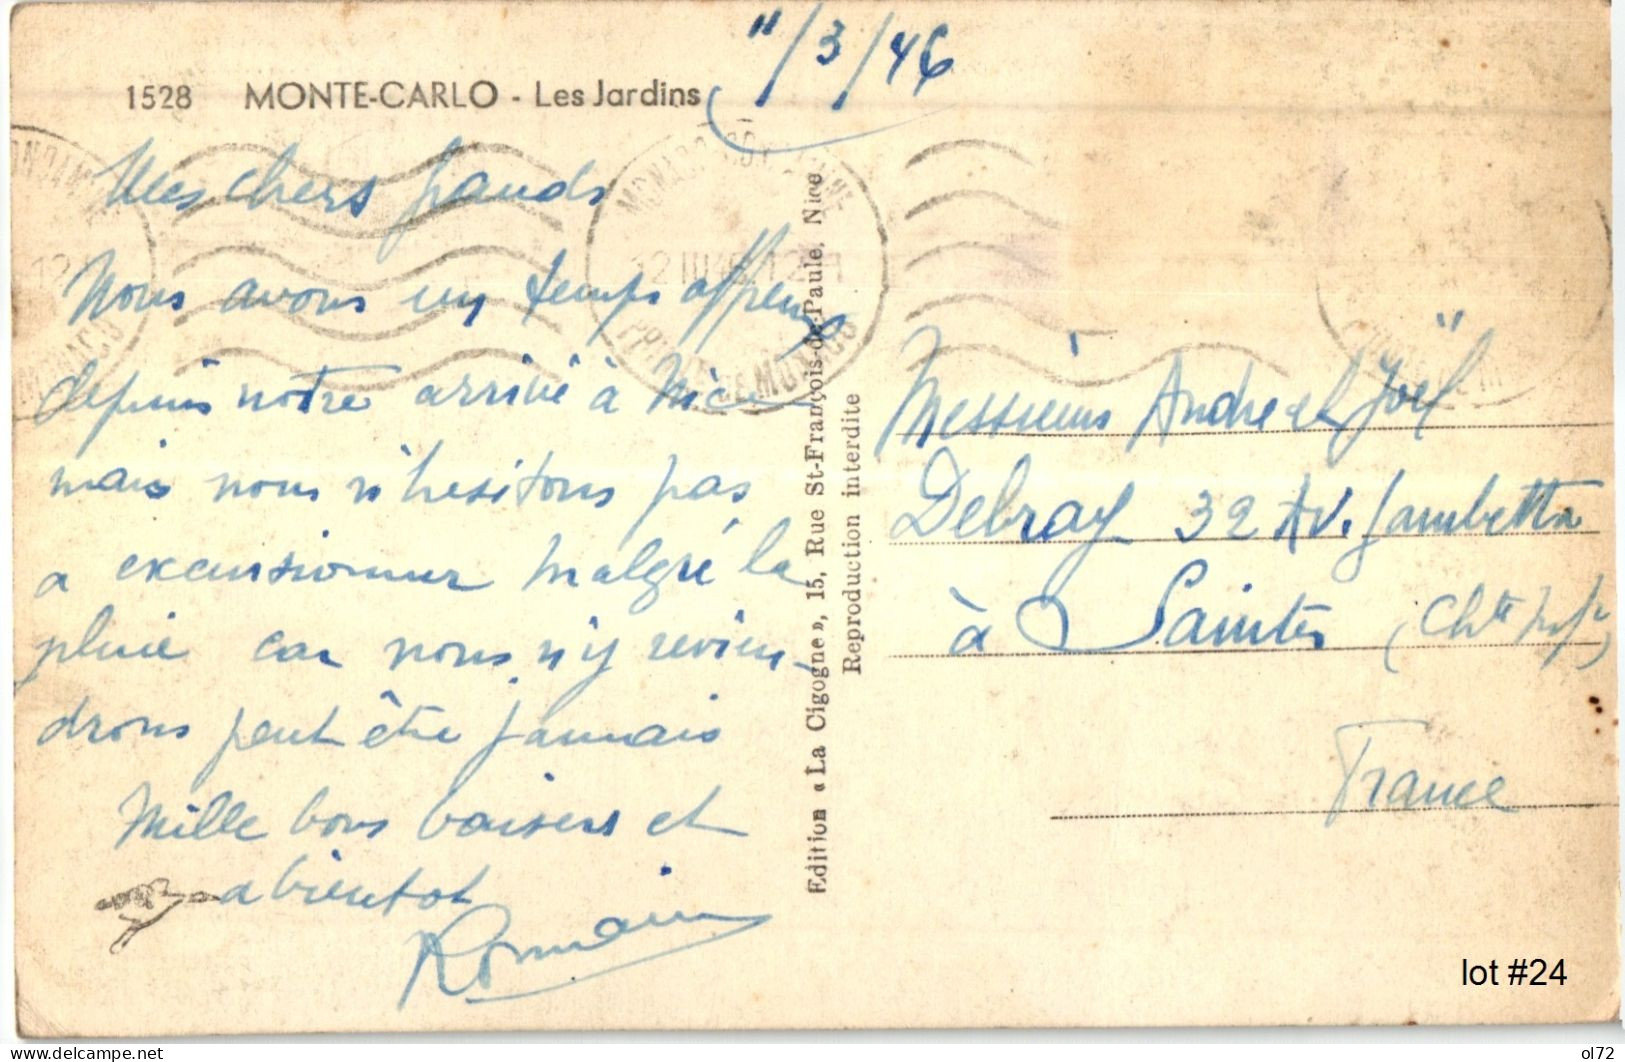 11/3/46
1528 MONTE-CARLO - Les Jardins
Mes chers grands
Nous avons un temps affreux
depuis notre arrivé à Nice
mais nous n'hesitons pas
a excursionner malgré la
pluie car nous n'y revien-
drons peut être jamais
Mille bons baisers et
a bientot
Romain
MONACO
12 III 46
PPAUTE DE MONACO
Edition « La Cigogne », 15, Rue St-François-de-Paule, Nice
Reproduction interdite
Messieurs Andre et Joël
Debray 32 Av. Gambetta
à Saintes (Chte Infre)
France
lot #24
delcampe.net
ol72